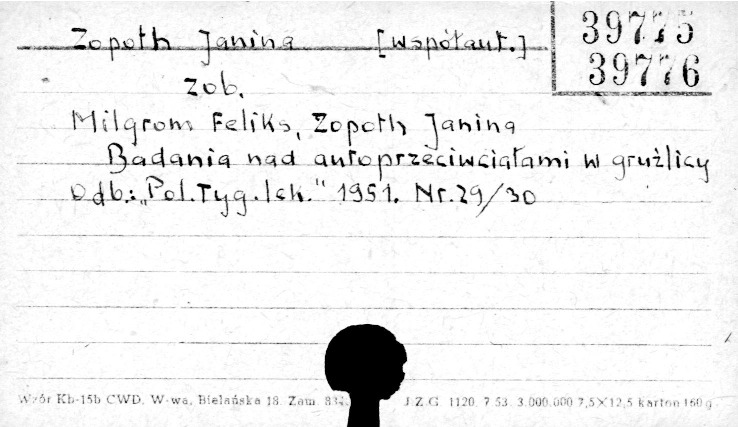 Zopoth Janina [współaut.]
39775
39776
zob.
Milgrom Feliks, Zopoth Janina
Badania nad autoprzeciwciałami w gruźlicy
Odb.: „Pol. Tyg. lek." 1951. Nr. 29/30
Wzór Kb-15b CWD, W-wa, Bielańska 18. Zam. J.Z.G. 1120. 7 53. 3.000.000 7,5×12,5 karton 160 g